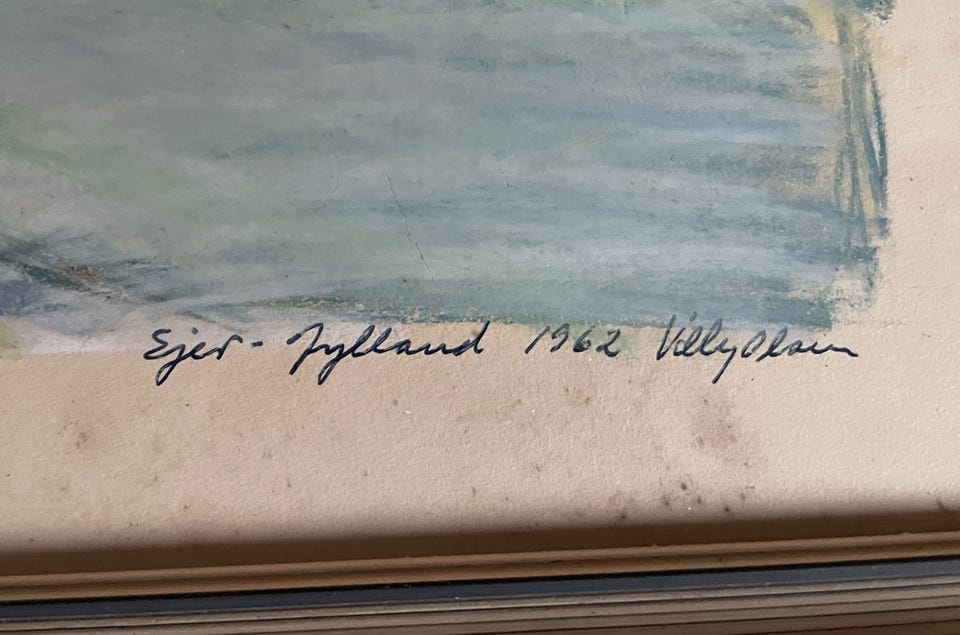 Ejer - Jylland 1962 Villy Olsen